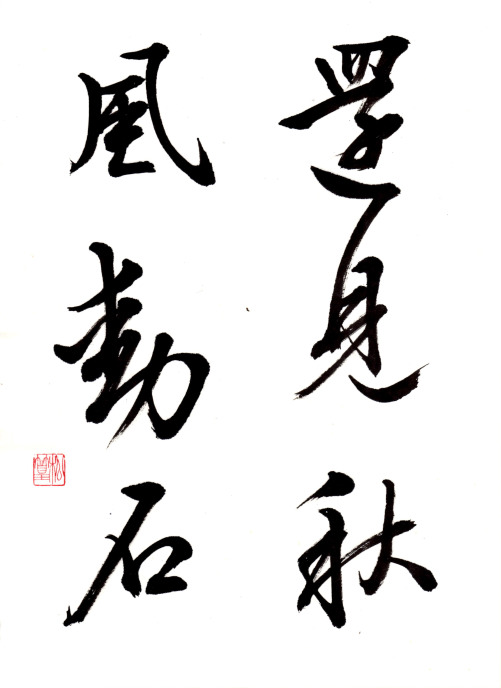 還見秋
風動石